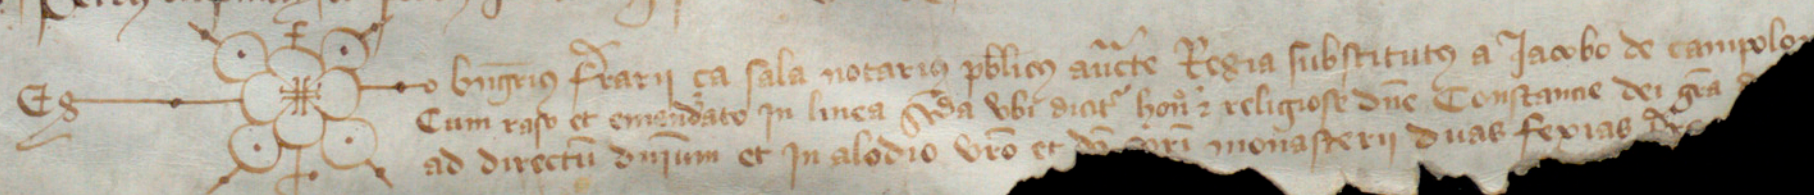 Eg o bngr̄ius ferrarii ça sala notarius pb̄licus auct̄e Regia substitutus a Jacobo de campolo
Cum raso et emendato in linea sc̄da ubi dicit^r hon^e ⁊ religiose dn̄e Constancie dei gr̄a
ad directū dn̄ium et in alodio vr̄o et monasterii duas fexias